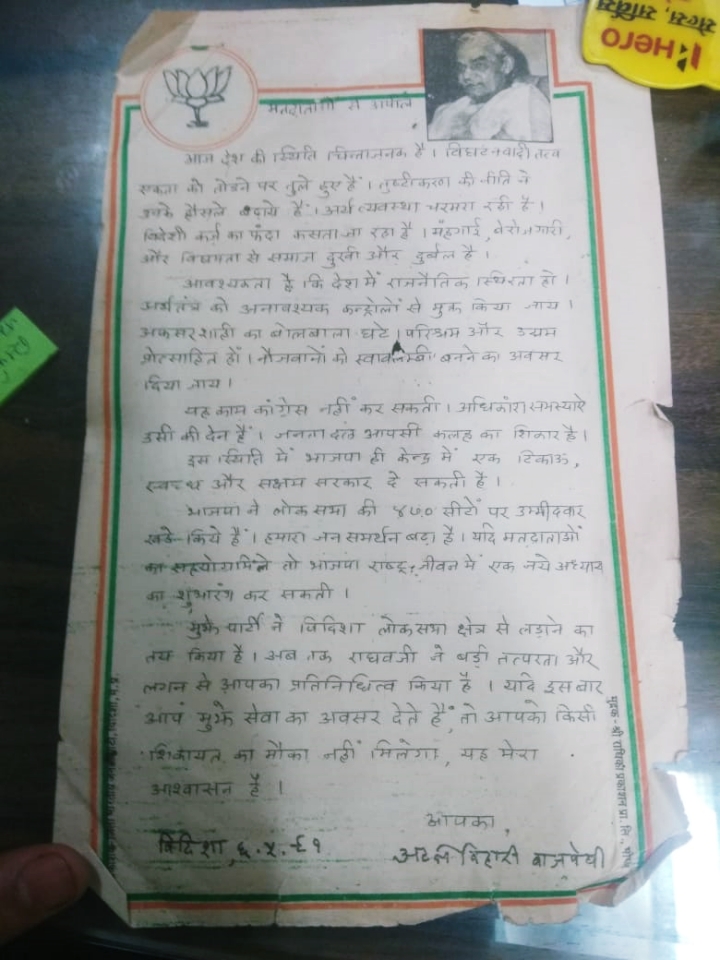 Hero
सेल्स, सर्विस
मतदाताओं से अपील
आज देश की स्थिति चिन्ताजनक है । विघटनवादी तत्व
एकता को तोडने पर तुले हुए हैं । तुष्टीकरण की नीति ने
उनके हौसले बढ़ाये हैं । अर्थ व्यवस्था चरमरा रही है ।
विदेशी कर्ज का फंदा कसता जा रहा है । मंहगाई, बेरोजगारी,
और विषमता से समाज दुखी और दुर्बल है ।
आवश्यकता है कि देश में राजनैतिक स्थिरता हो ।
अर्थतंत्र को अनावश्यक कन्ट्रोलों से मुक्त किया जाय ।
अफसरशाही का बोलबाला घटे । परिश्रम और उद्यम
प्रोत्साहित हों । नौजवानों को स्वावलम्बी बनने का अवसर
दिया जाय ।
यह काम कांग्रेस नहीं कर सकती । अधिकांश समस्याऐं
उसी की देन हैं । जनता दल आपसी कलह का शिकार है ।
इस स्थिति में भाजपा ही केन्द्र में एक टिकाऊ,
स्वच्छ और सक्षम सरकार दे सकती है ।
भाजपा ने लोकसभा की ४७० सीटों पर उम्मीदवार
खडे किये हैं । हमारा जन समर्थन बढ़ा है । यदि मतदाताओं
का सहयोग मिले तो भाजपा राष्ट्र जीवन में एक नये अध्याय
का शुभारंभ कर सकती ।
मुझे पार्टी ने विदिशा लोकसभा क्षेत्र से लड़ाने का
तय किया है । अब तक राघवजी ने बड़ी तत्परता और
लगन से आपका प्रतिनिधित्व किया है । यदि इस बार
आप मुझे सेवा का अवसर देते हैं, तो आपको किसी
शिकायत का मौका नहीं मिलेगा, यह मेरा
आश्वासन है ।
आपका,
विदिशा, ६.५.९१ अटल बिहारी वाजपेयी